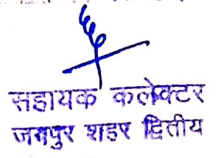 सहायक कलेक्टर
जयपुर शहर द्वितीय